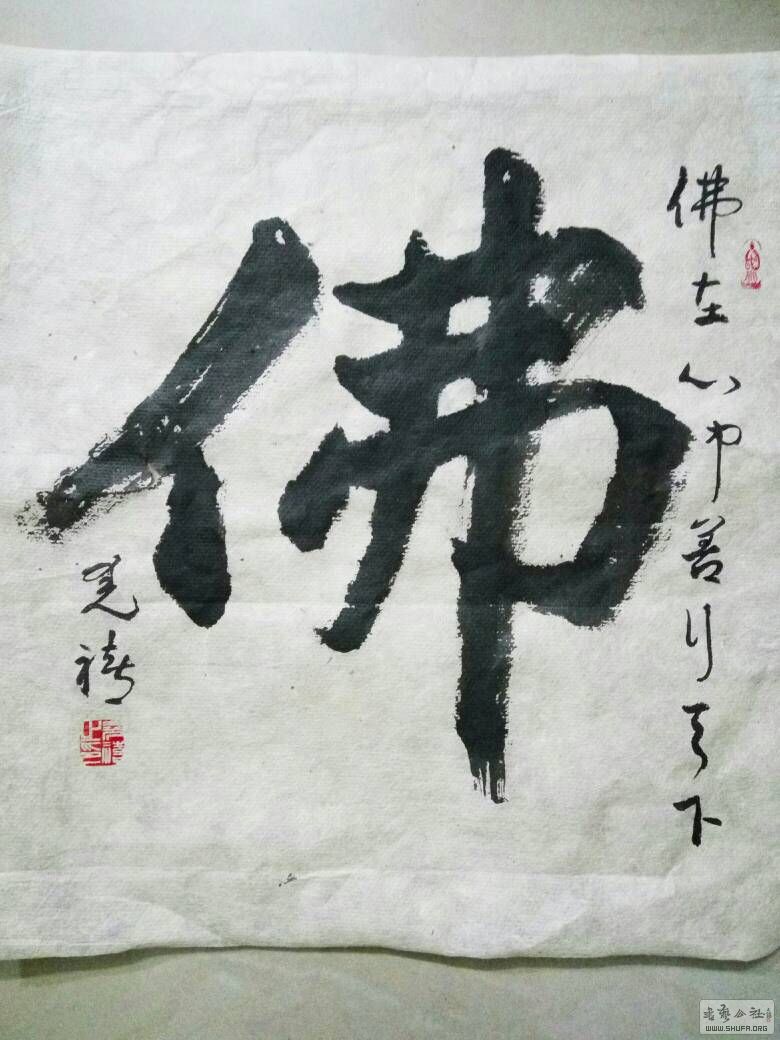 佛在心中善行天下
佛
光禧
书艺公社
WWW.SHUFA.ORG